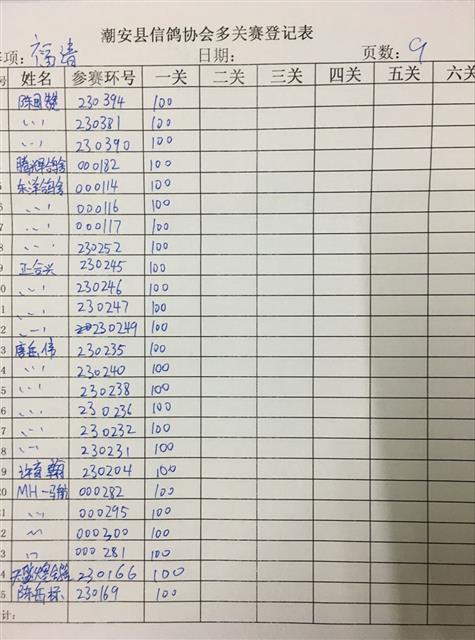 潮安县信鸽协会多关赛登记表
项: 福清 日期: 页数: 9
号 姓名 参赛环号 一关 二关 三关 四关 五关 六关
230394 100
〃 230381 100
〃 230390 100
腾辉鸽舍 000182 100
5 东洋鸽舍 000114 100
6 〃 000116 100
7 〃 000117 100
8 〃 230252 100
9 正合兴 230245 100
0 〃 230246 100
1 〃 230247 100
2 〃 230249 100
3 唐岳伟 230235 100
4 〃 230240 100
5 〃 230238 100
6 〃 230236 100
7 〃 230232 100
8 〃 230231 100
19 许育翰 230204 100
20 MH一 000282 100
21 〃 000295 100
2 〃 000300 100
3 〃 000281 100
4 230166 100
5 陈岳标 230169 100
计: